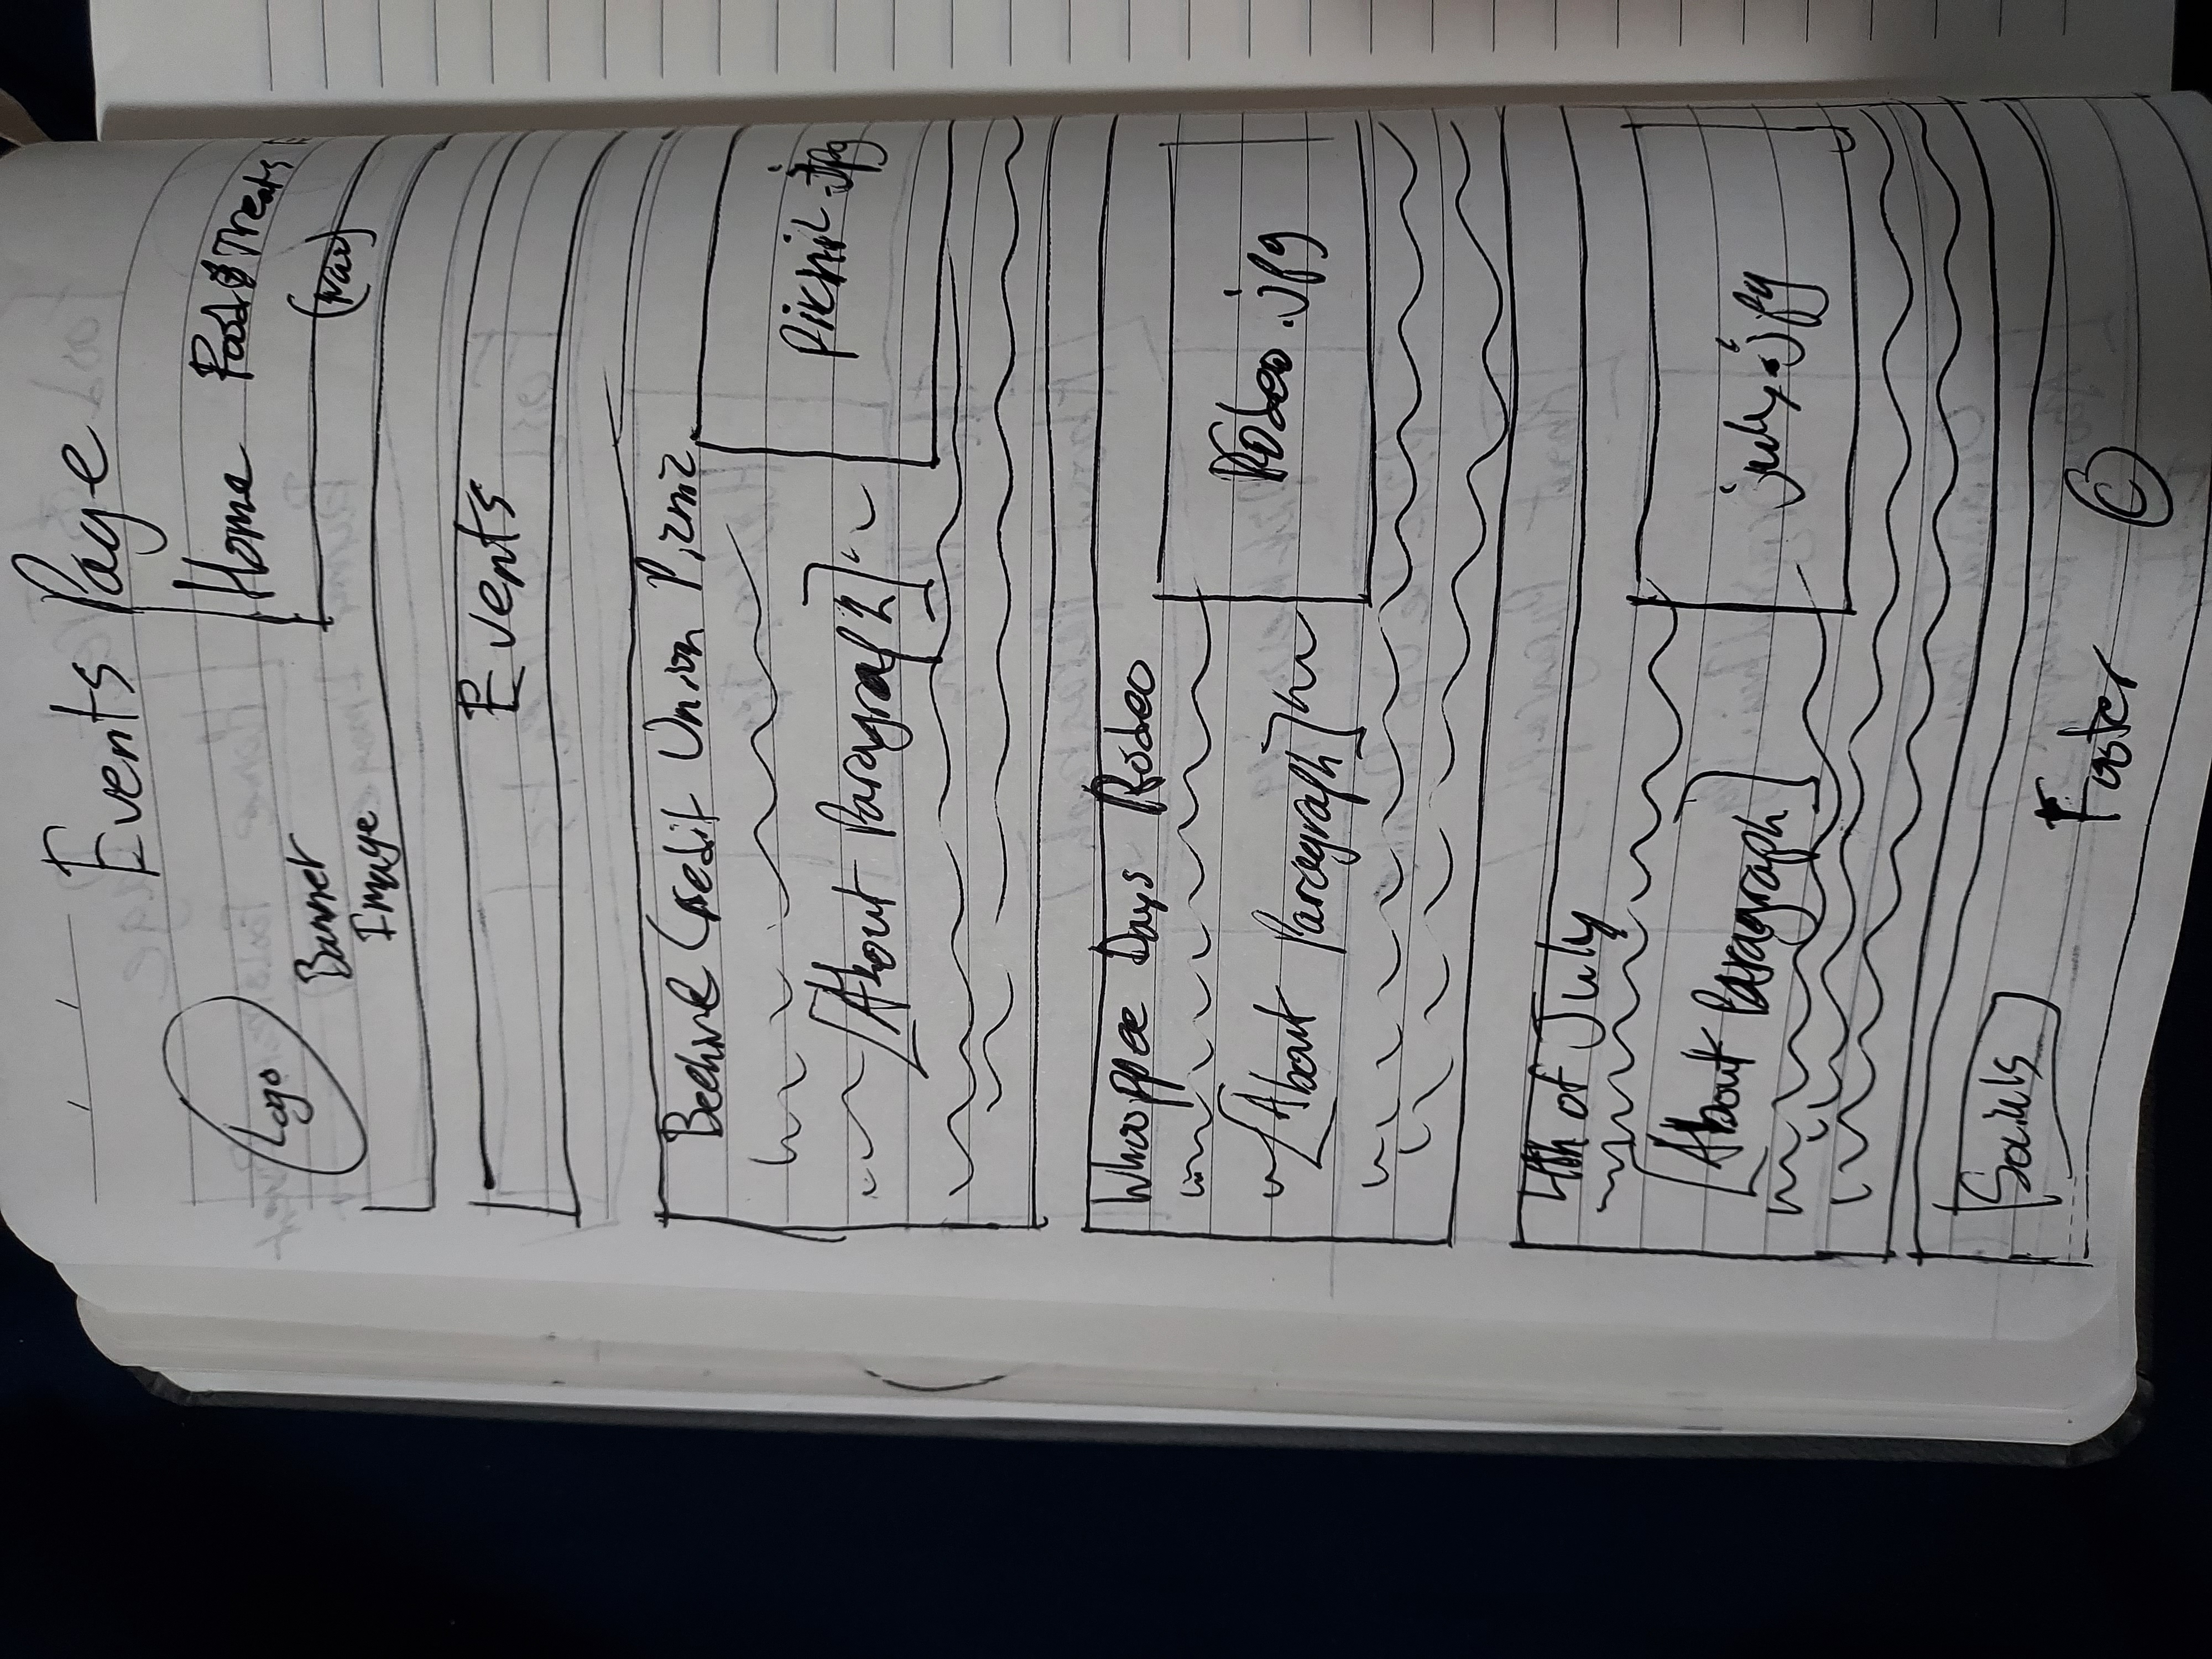 Events Page
Logo
Home Food & Treats
(Nav)
Banner
Image
Events
Beehive Credit Union Picnic
[About Paragraph]
picnic.jpg
Whooppee Days Rodeo
[About Paragraph]
Rodeo.jpg
4th of July
[About Paragraph]
july.jpg
Socials
Footer ©